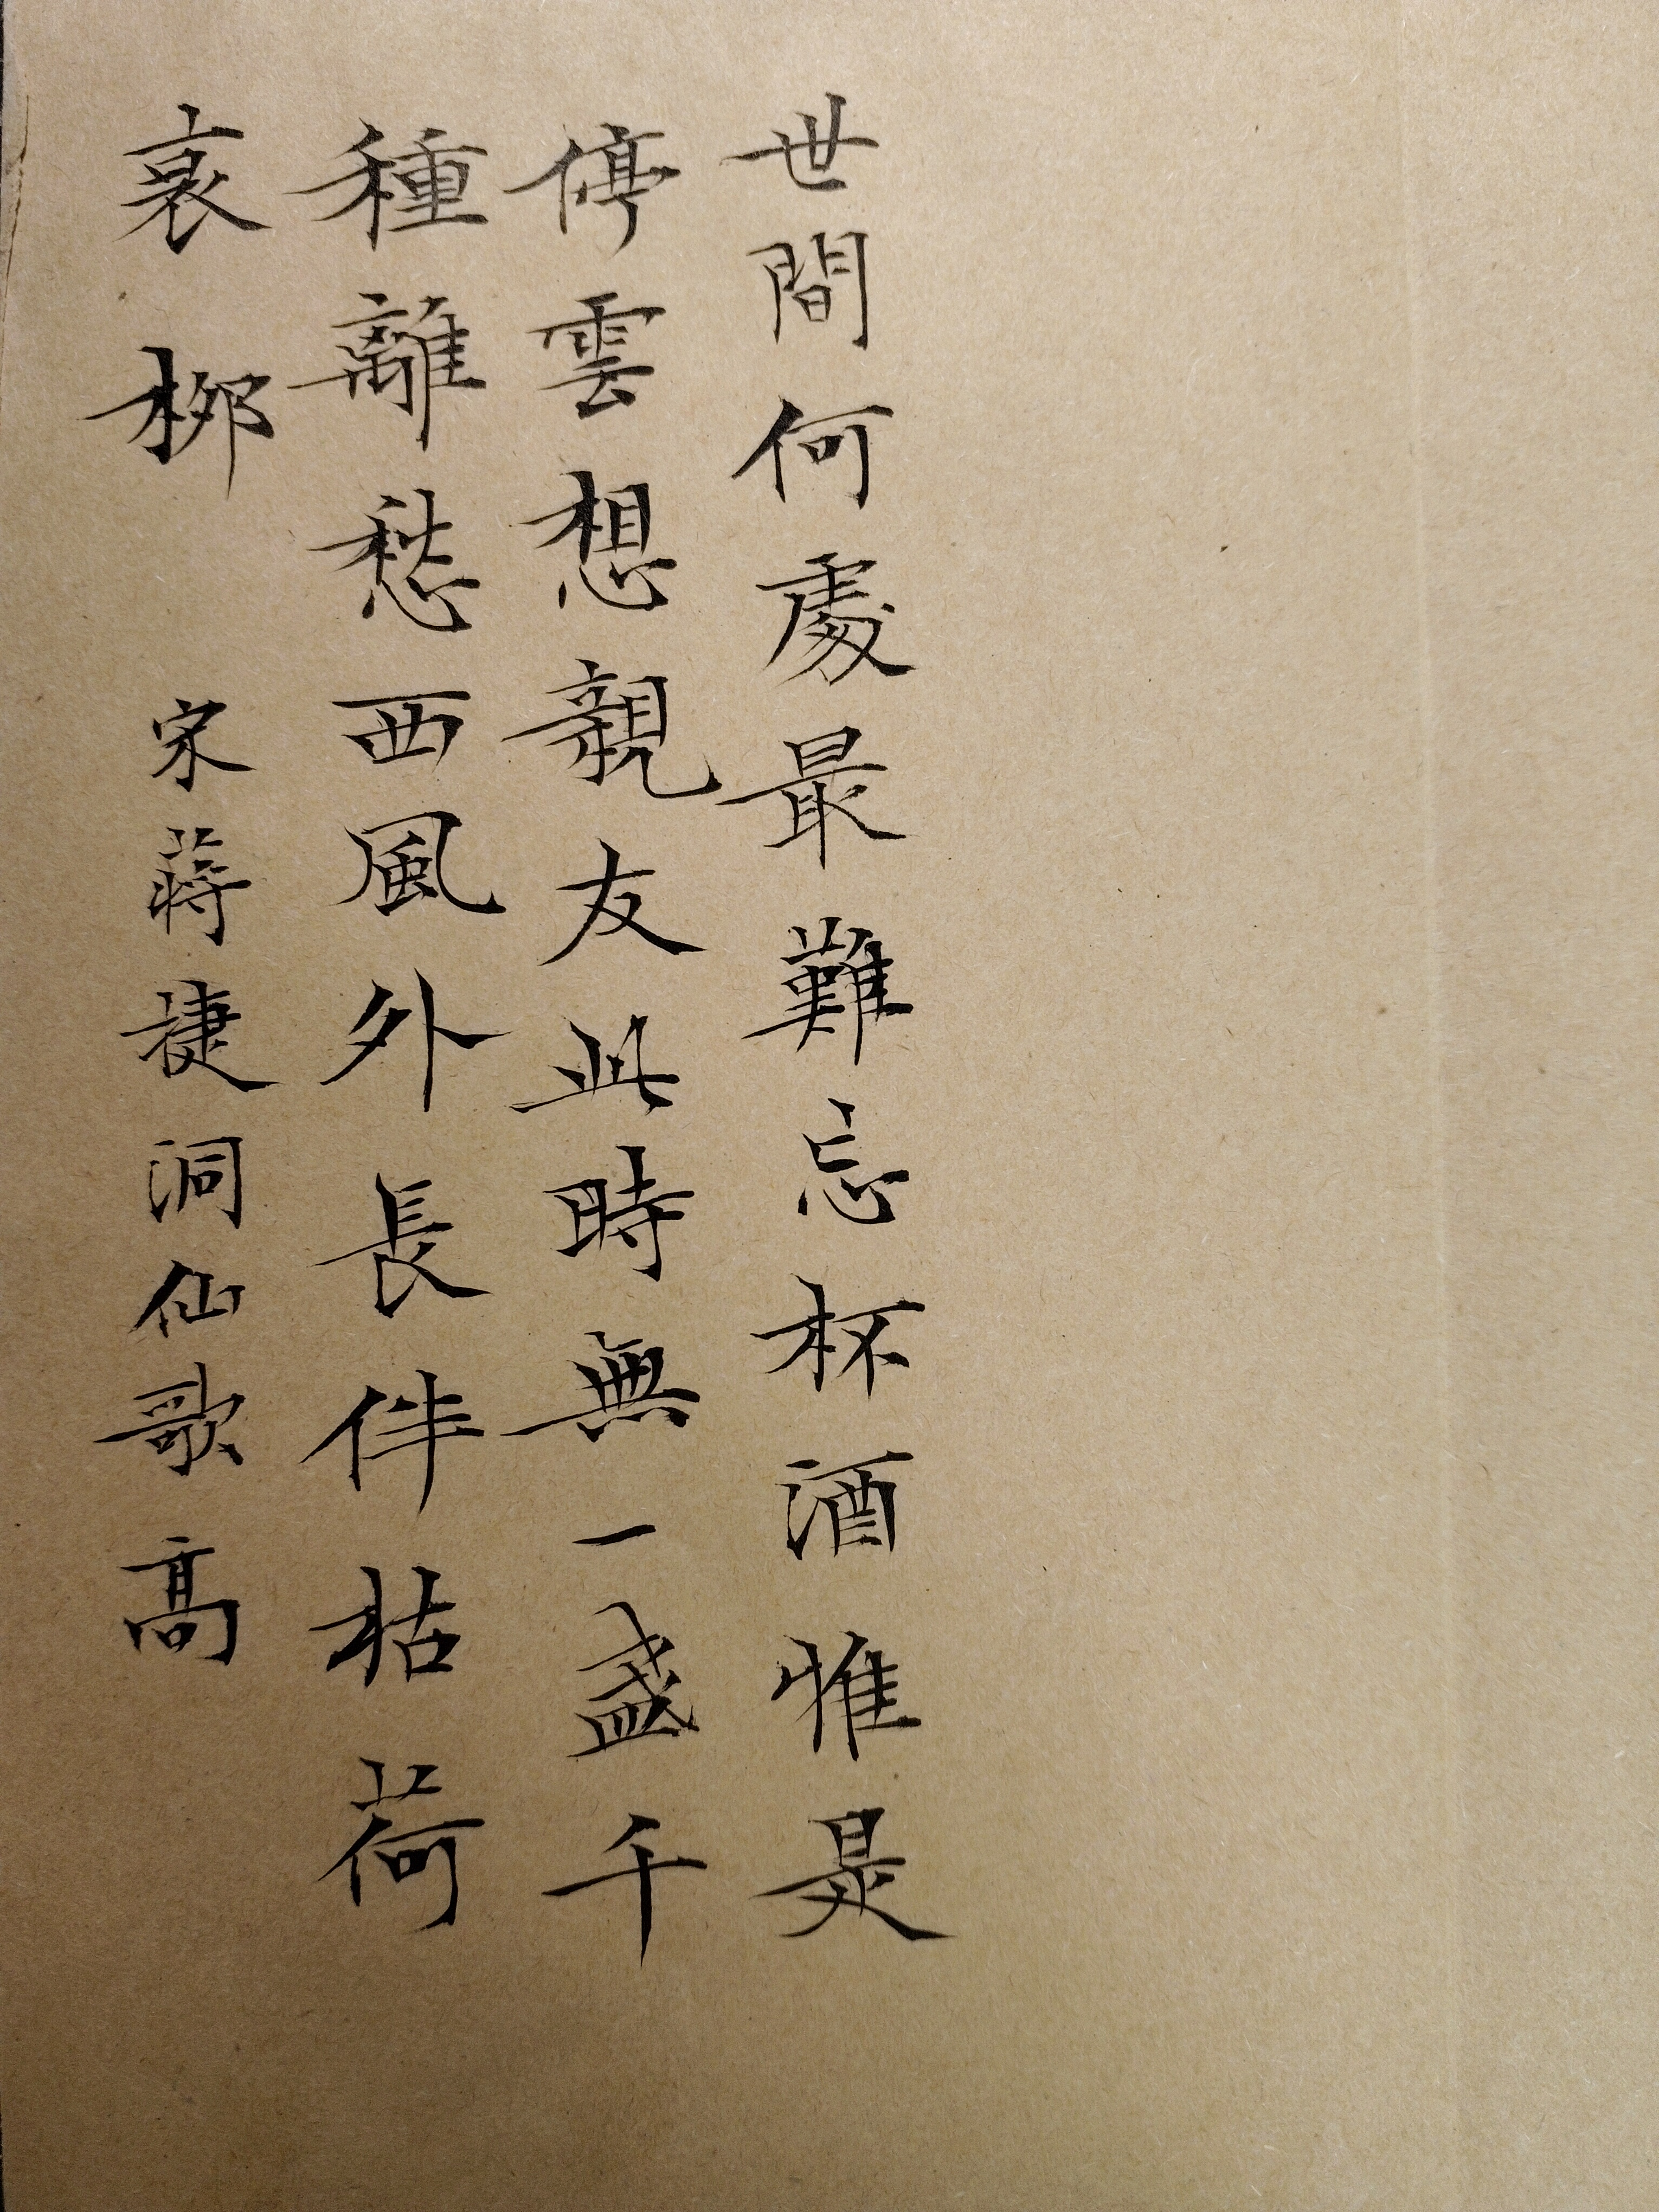 世間何處最難忘杯酒惟是
停雲想親友此時無一盞千
種離愁西風外長伴枯荷
衰柳　宋蔣捷洞仙歌高